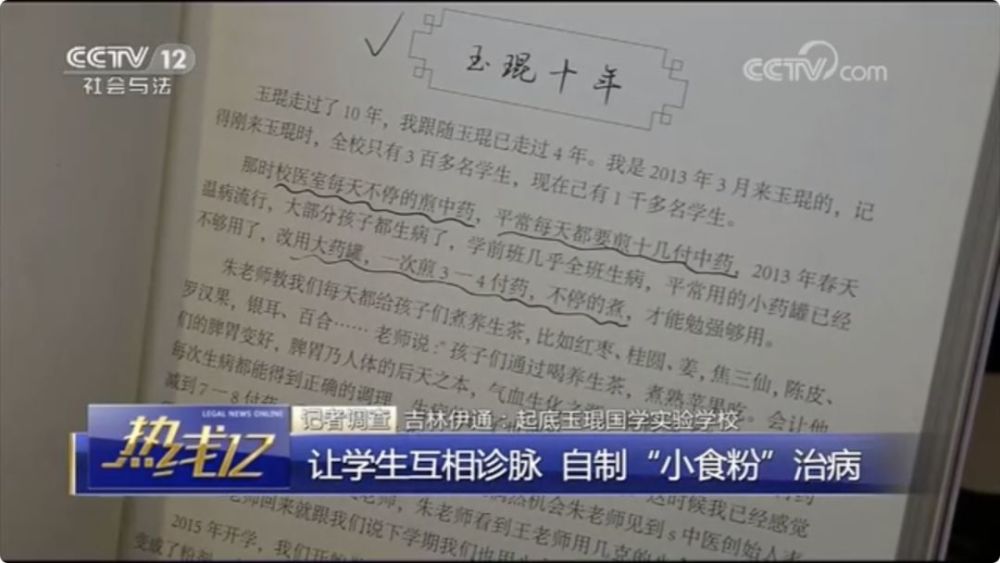 CCTV 12
社会与法
CCTV.com
玉琨十年
玉琨走过了10年，我跟随玉琨已走过4年。我是2013年3月来玉琨的，记
得刚来玉琨时，全校只有3百多名学生，现在已有1千多名学生。
那时校医室每天不停的煎中药，平常每天都要煎十几付中药，2013年春天
温病流行，大部分孩子都生病了，学前班几乎全班生病，平常用的小药罐已经
不够用了，改用大药罐，一次煎3—4付药，不停的煮，才能勉强够用。
朱老师教我们每天都给孩子们煮养生茶，比如红枣、桂圆、姜，焦三仙，陈皮、
罗汉果，银耳、百合……老师说：“孩子们通过喝养生茶，煮熟苹果吃。会让他
们的脾胃变好，脾胃乃人体的后天之本，气血生化之
每次生病都能得到正确的调理，生病
减到7—8付药
LEGAL NEWS ONLINE
热线12
记者调查 吉林伊通：起底玉琨国学实验学校
让学生互相诊脉 自制“小食粉”治病
这时候我已经感觉
老师，朱老师看到王老师用几克的
机会朱老师见到s中医创始人李
老师回来就跟我们说下学期我们也用
2015年开学，我们开始
变成了粉剂